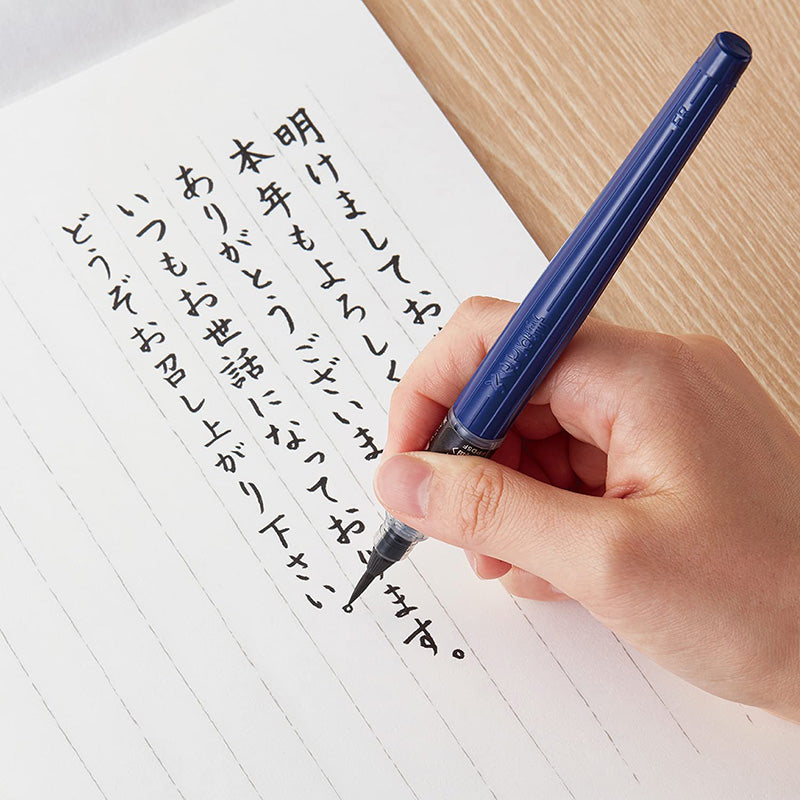 明けまして
本年もよろしく
ありがとうございま
いつもお世話になっております。
どうぞお召し上がり下さい。